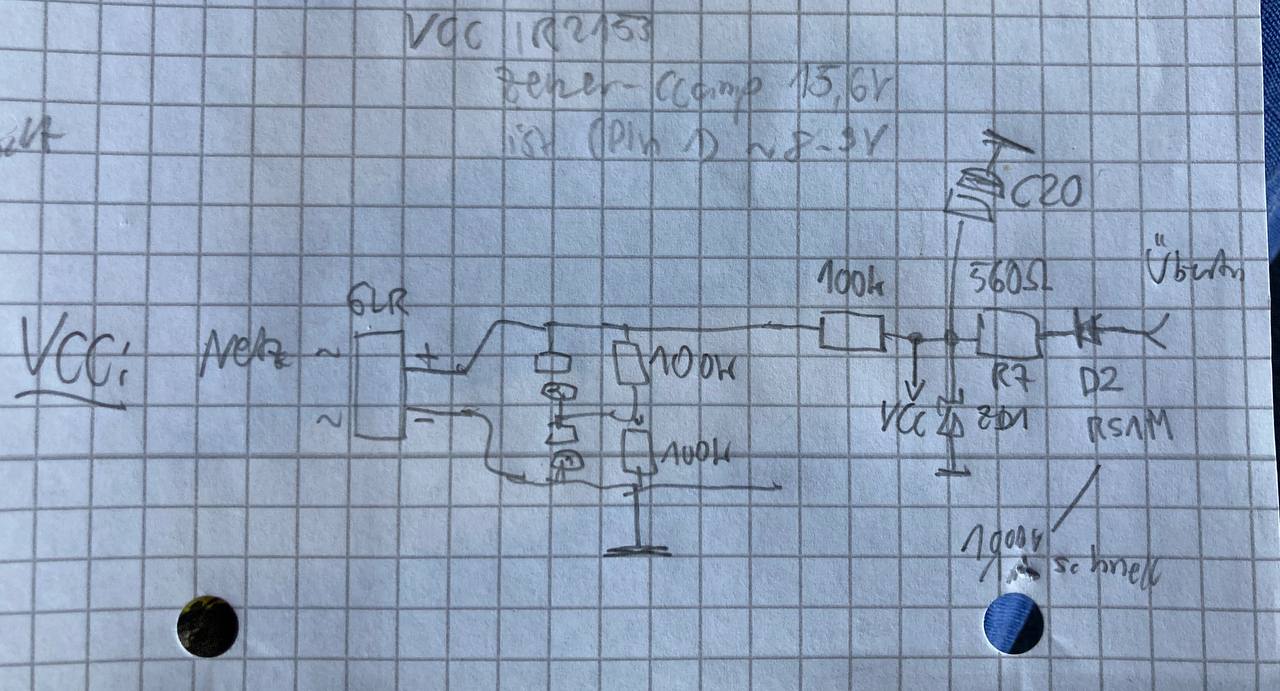 VCC IR2153
Zener-Clamp 15,6V
ist (Pin 1) ~8-9V
C20
100k
560Ω
GLR
VCC:
Netz ~
+
100k
R7
D2
~
-
VCC
ZD1
RS1M
100k
1000V
schnell